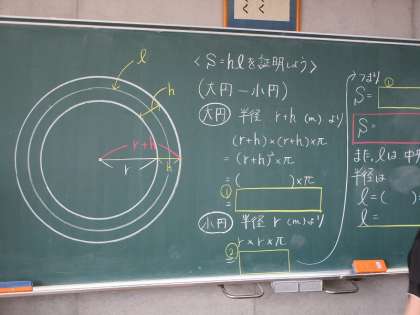 l
h
r+h
r
h
< S=hl を証明しよう >
(大円-小円)
大円 半径 r+h (m) より
(r+h)×(r+h)×π
=(r+h)²π
=( )×π
①
=
小円 半径 r (m) より
r×r×π
②
=
つまり
①
S=
S=
また、lは中
半径は
l=( )
l=